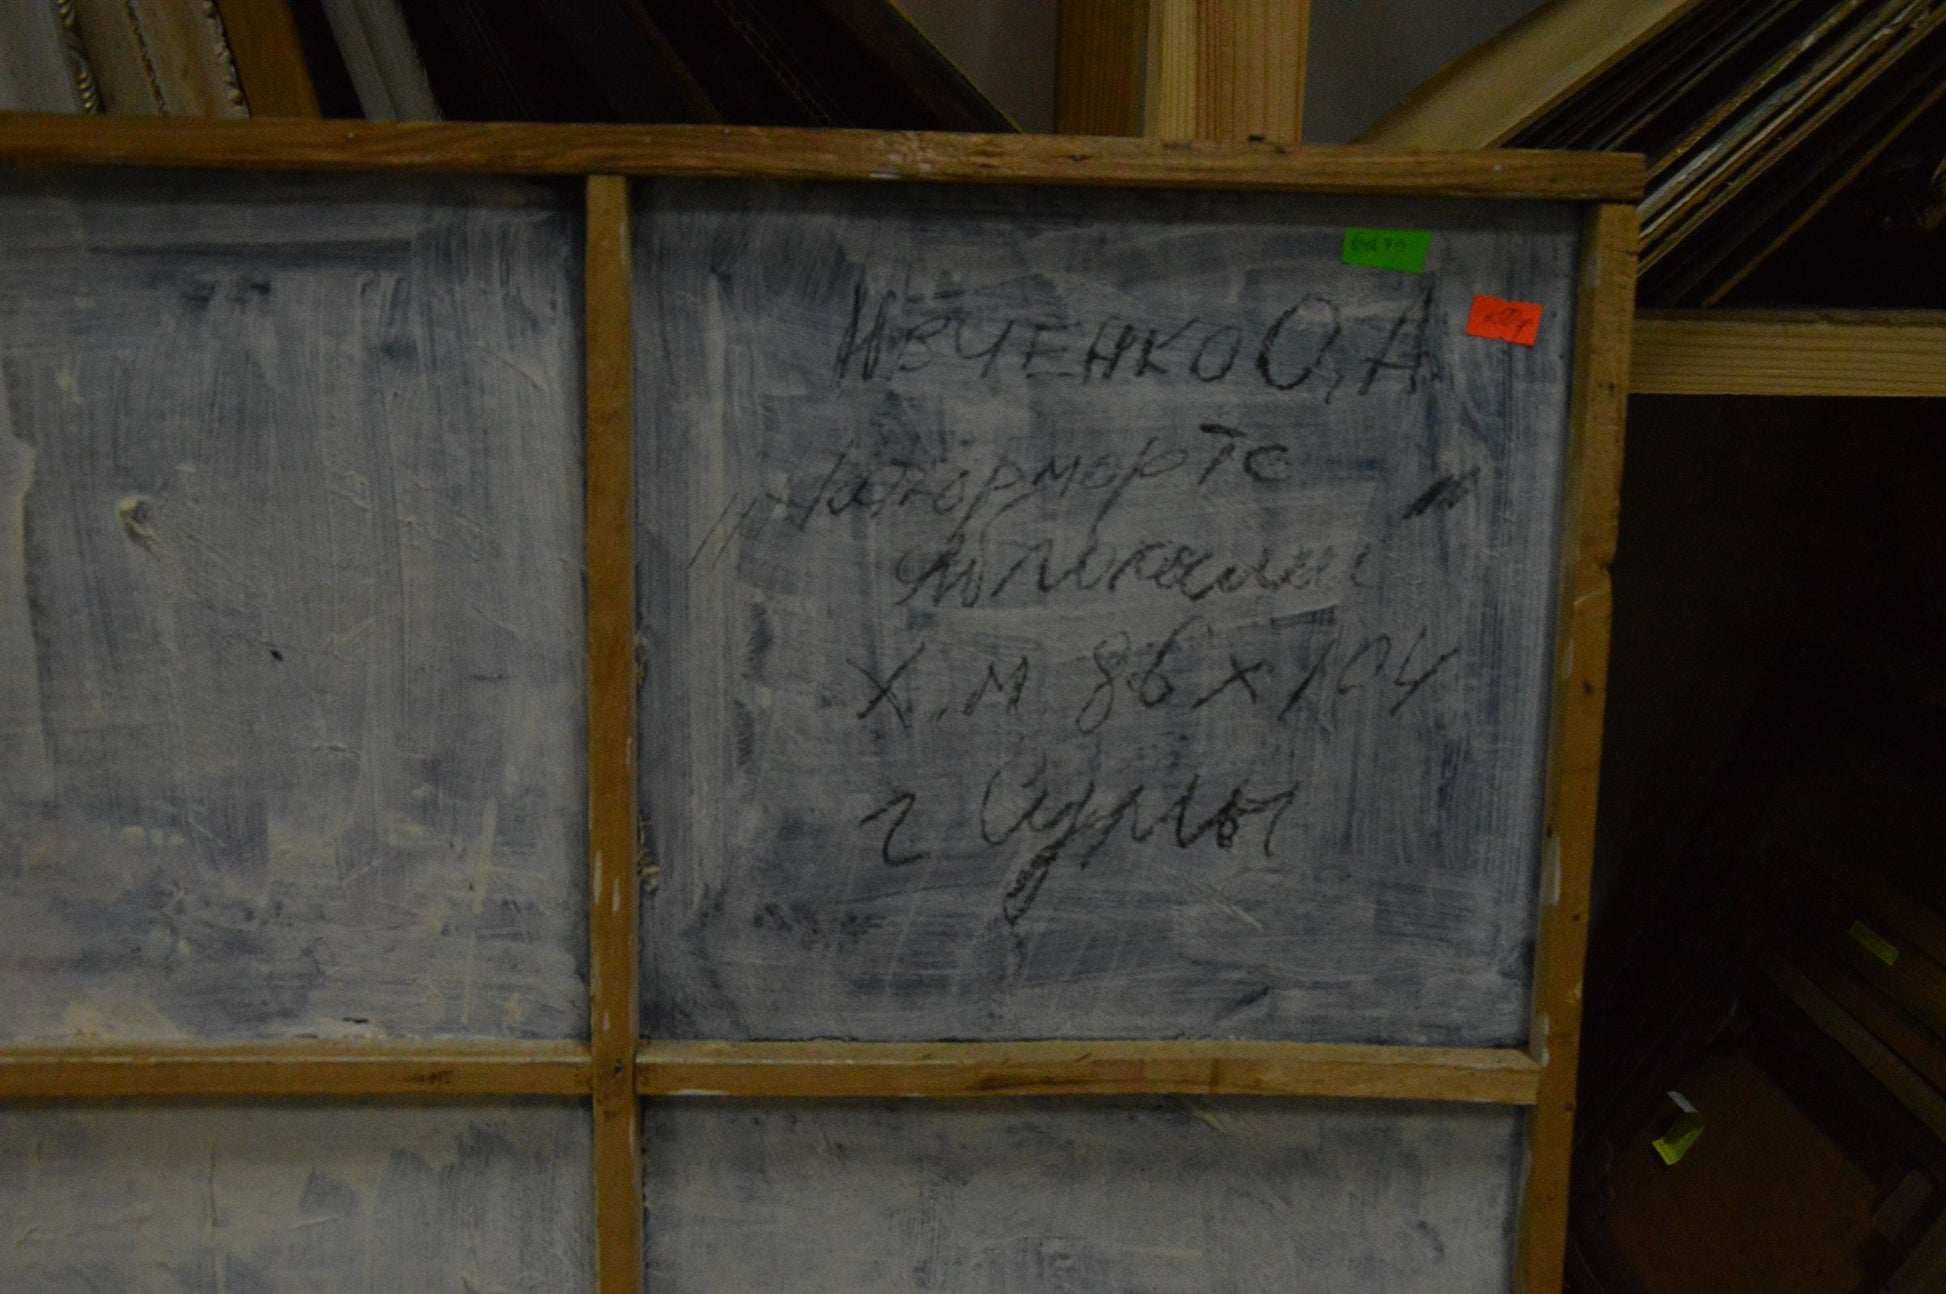 Ивченко О,А
"Натюрморт с
яблоками"
х.м 86х104
г Сумы